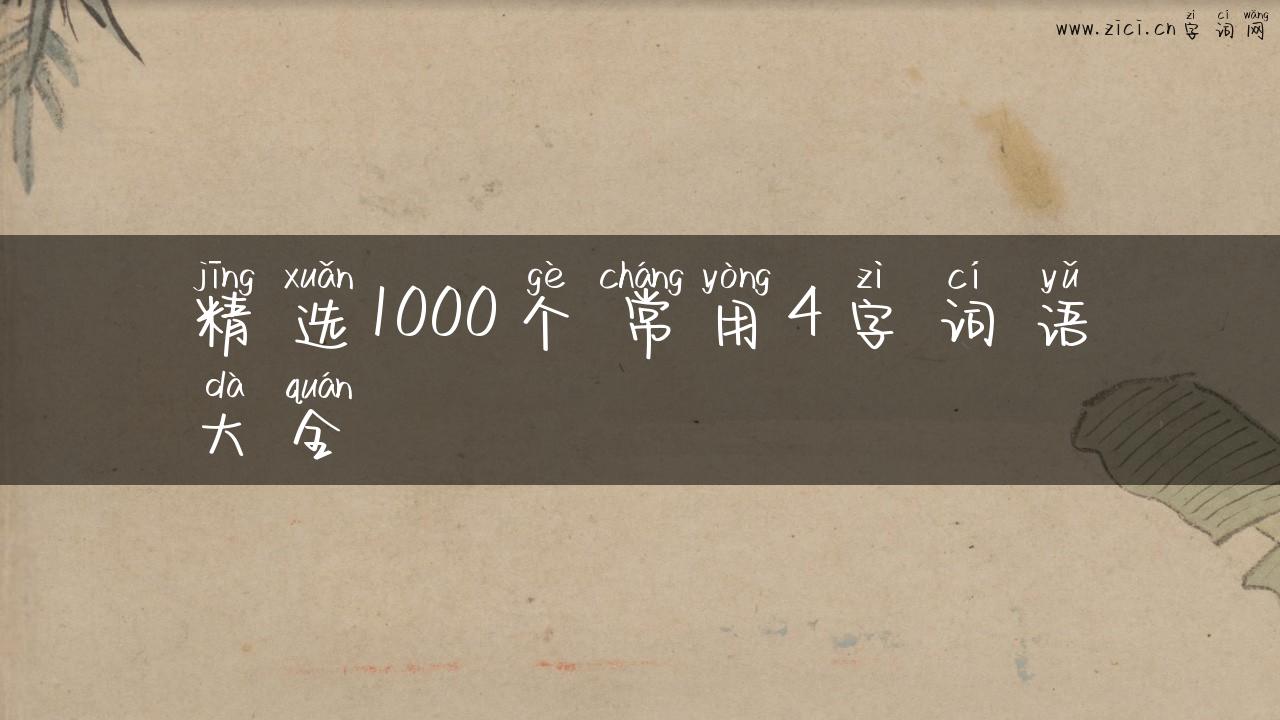 zì cí wǎng
www.zici.cn 字词网
jīng xuǎn gè cháng yòng zì cí yǔ
精选1000个常用4字词语
dà quán
大全